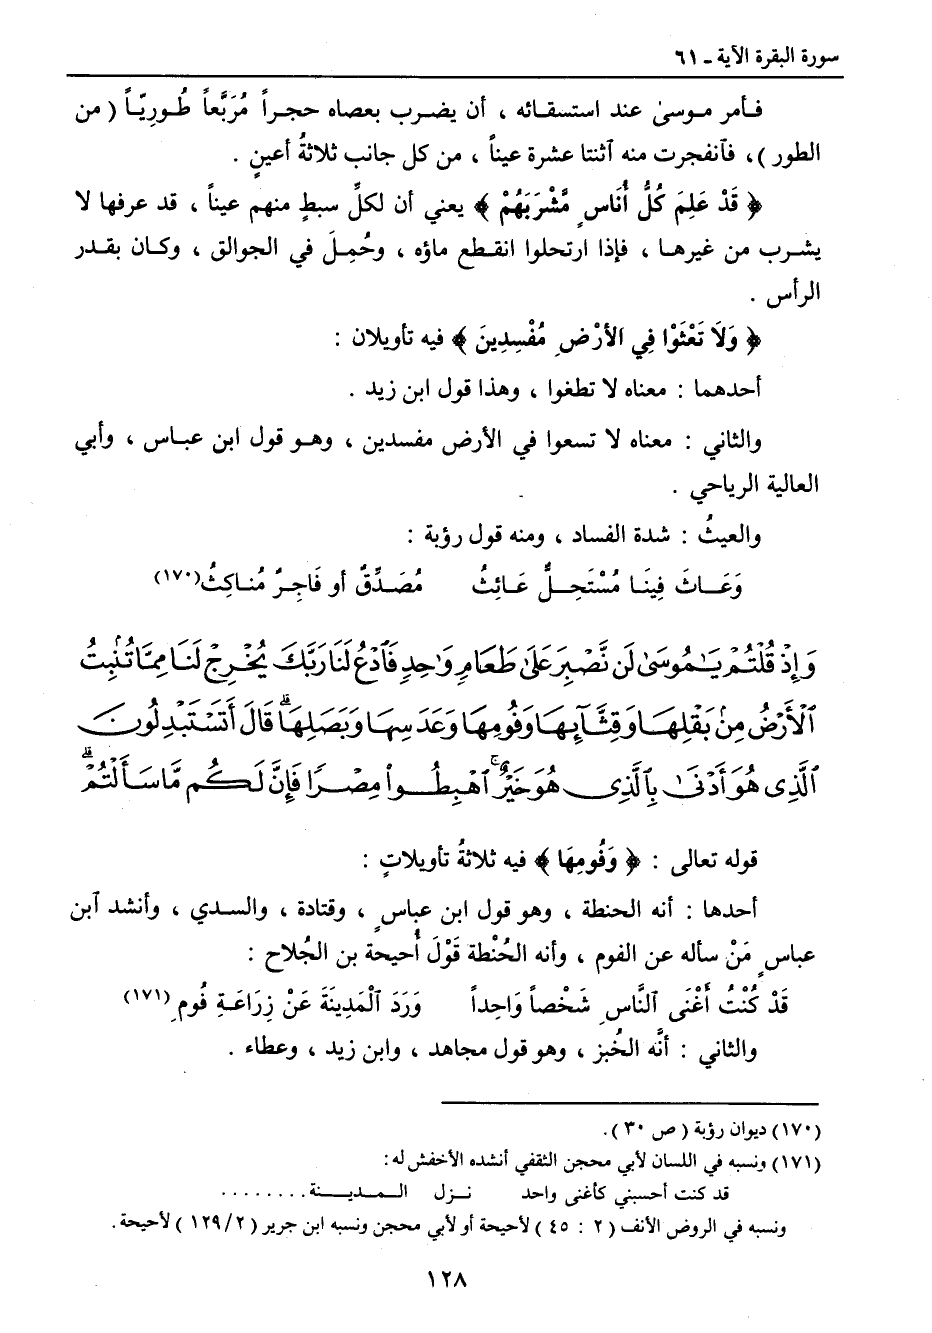 سورة البقرة الآية ـ ٦١
فـأمر مـوسىٰ عند استسقائه ، أن يضـرب بعصاه حجـراً مُرَبَّعاً طُـورِيّـاً ( من
الطور )، فٱنفجرت منه ٱثنتا عشرة عيناً ، من كل جانب ثلاثةُ أعينٍ .
﴿ قَدْ عَلِمَ كُلُّ أُنَاسٍ مَّشْرَبَهُمْ ﴾ يعني أن لكلِّ سبطٍ منهم عيناً ، قد عرفها لا
يشـرب من غيرهـا ، فإذا ارتحلوا انقـطع ماؤه ، وحُمِـلَ في الجوالق ، وكـان بقـدر
الرأس .
﴿ وَلَا تَعْثَوْا فِي الأَرْضِ مُفْسِدِينَ ﴾ فيه تأويلان :
أحدهما : معناه لا تطغوا ، وهذا قول ابن زيد .
والثاني : معناه لا تسعوا في الأرض مفسدين ، وهـو قول ابن عبـاس ، وأبي
العالية الرياحي .
والعيثُ : شدة الفساد ، ومنه قول رؤبة :
وَعَـاثَ فِينَـا مُسْتَحِـلٌّ عَـائِثُ مُصَـدِّقٌ أو فَاجِـرٌ مُنـاكِثُ(١٧٠)
وَإِذْ قُلْتُمْ يَـٰمُوسَىٰ لَن نَّصْبِرَ عَلَىٰ طَعَامٍ وَٰحِدٍ فَٱدْعُ لَنَا رَبَّكَ يُخْرِجْ لَنَا مِمَّا تُنۢبِتُ
ٱلْأَرْضُ مِنۢ بَقْلِهَا وَقِثَّآئِهَا وَفُومِهَا وَعَدَسِهَا وَبَصَلِهَا ۖ قَالَ أَتَسْتَبْدِلُونَ
ٱلَّذِى هُوَ أَدْنَىٰ بِٱلَّذِى هُوَ خَيْرٌ ۚ ٱهْبِطُوا۟ مِصْرًا فَإِنَّ لَكُم مَّا سَأَلْتُمْ ۗ
قوله تعالى : ﴿ وَفُومِهَا ﴾ فيه ثلاثةُ تأويلاتٍ :
أحدها : أنه الحنطة ، وهو قول ابن عباسٍ ، وقتادة ، والسـدي ، وأنشد ٱبن
عباسٍ مَنْ سأله عن الفوم ، وأنه الحُنْطة قَوْلَ أُحيحة بن الجُلاح :
قَدْ كُنْتُ أَغْنَى ٱلنَّاسِ شَخْصاً وَاحِداً وَرَدَ ٱلْمَدِينَةَ عَنْ زِرَاعَـةِ فُومِ(١٧١)
والثاني : أنَّه الخُبز ، وهو قول مجاهد ، وابن زيد ، وعطاء .
(١٧٠) ديوان رؤبة ( ص ٣٠ ).
(١٧١) ونسبه في اللسان لأبي محجن الثقفي أنشده الأخفش له:
قد كنت أحسبني كأغنى واحد نـزل الـمـديـنـة . . . . . . . .
ونسبه في الروض الأنف ( ٢ : ٤٥ ) لأحيحة أو لأبي محجن ونسبه ابن جرير ( ٢/ ١٢٩ ) لأحيحة.
١٢٨